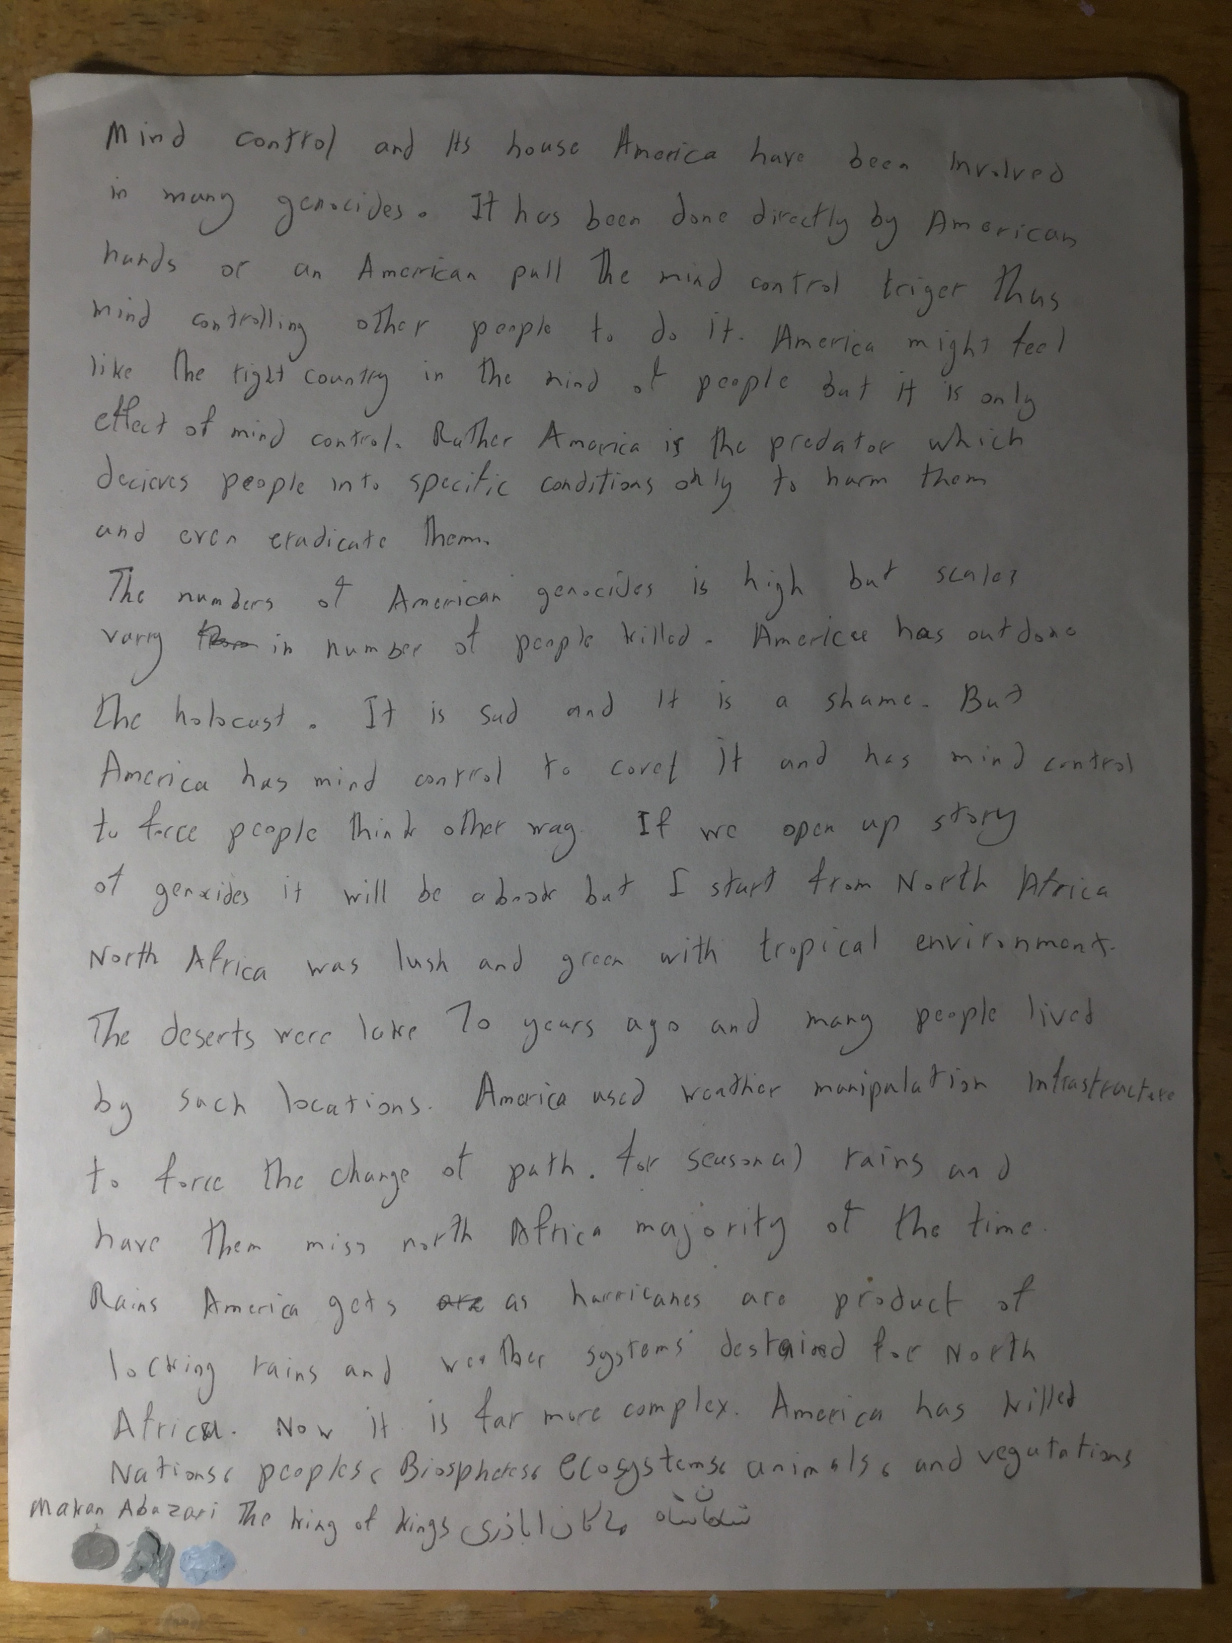 Mind control and Its house America have been Involved
in many genocides. It has been done directly by American
hands or an American pull the mind control triger thus
mind controlling other people to do it. America might feel
like the right country in the mind of people but it is only
effect of mind control. Rather America is the predator which
decieves people into specific conditions only to harm them
and even eradicate them.
The numbers of American genocides is high but scales
varry in number of people killed. America has outdone
the holocust. It is sad and It is a shame. But
America has mind control to cover it and has mind control
to force people think other way. If we open up story
of genocides it will be a book but I start from North Africa
North Africa was lush and green with tropical environment.
The deserts were lake 70 years ago and many people lived
by such locations. America used weather manipulation Infrastructure
to force the change of path. for seasonal rains and
have them miss north Africa majority of the time.
Rains America gets as hurricanes are product of
locking rains and weather systems destained for North
Africa. Now it is far more complex. America has killed
Nations, peoples, Biospheres, ecosystems, animals, and vegutations
Makan Abazari The king of kings ماکان اباذری شاهنشاه